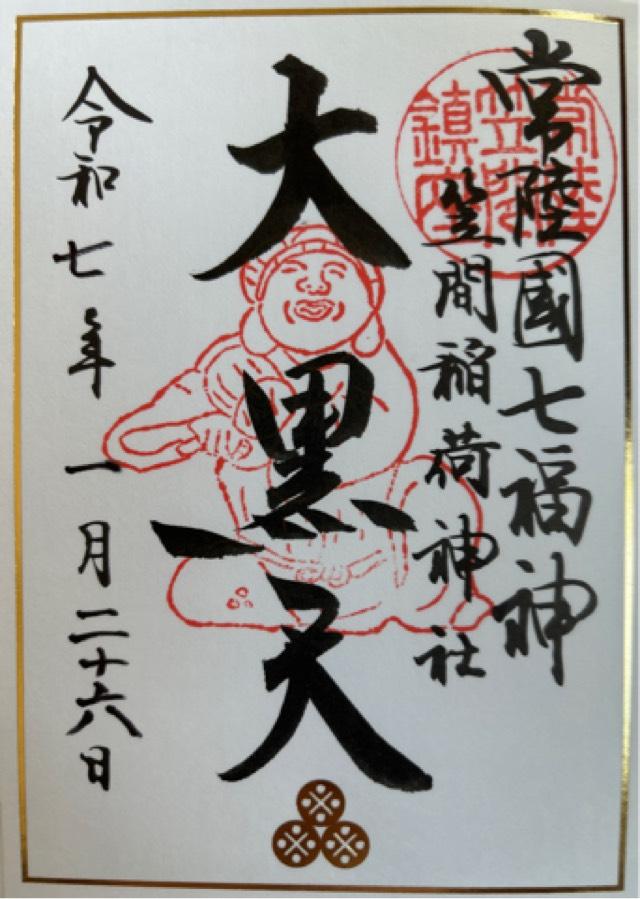 常陸國七福神
笠間稲荷神社
大黒天
令和七年一月二十六日
常陸
笠間
鎮座